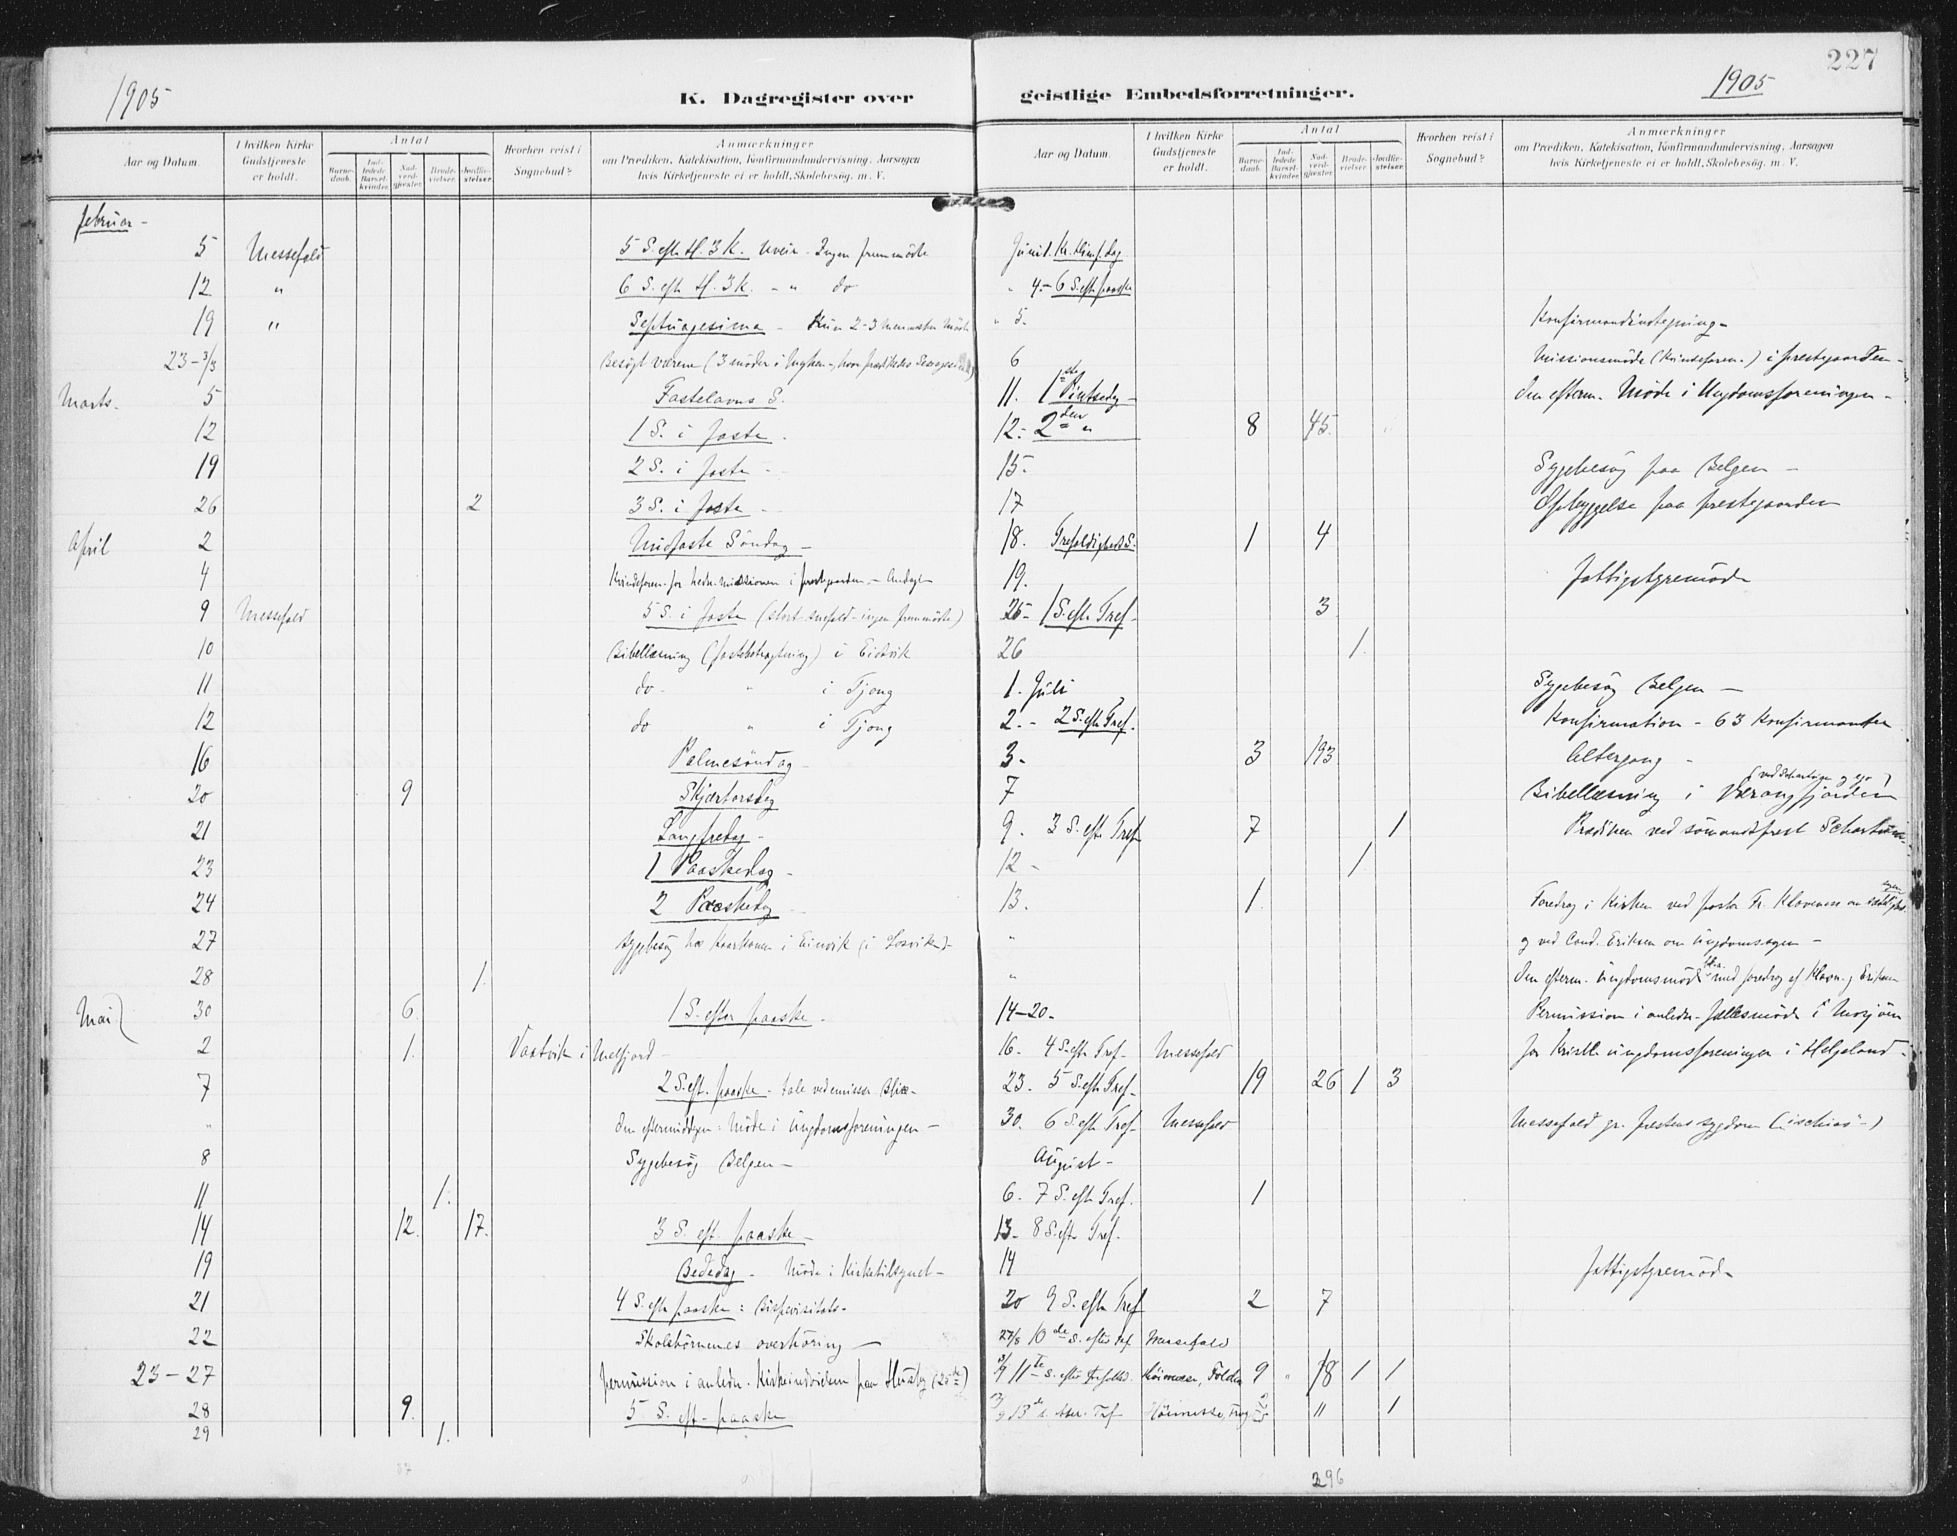 227
1905
K. Dagregister over geistlige Embedsforretninger.
1905
Aar og Datum
I hvilken Kirke Gudstjeneste er holdt.
Antal
Barne-daab.
Ind-ledede Barsel-kvinder.
Nad-verd-gjester.
Brude-vielser.
Jordfæ-stelser.
Hvorhen reist i Sognebud?
Anmærkninger
om Prædiken, Katekisation, Konfirmandundervisning, Aarsagen
hvis Kirketjeneste ei er holdt, Skolebesög, m. V.
Februar -
5 Messefald 5 S. efth H. 3 K. Uveir - Ingen fremmödte
12 " 6 S. efth H. 3 K. - " do
19 " Septuagesima - Kun 2-3 Mennesker mödte
23-3/3 Besögt værene (3 möder i Myken -
Marts. 5 Fastelavns S.
12 1 S. i faste.
19 2 S. i faste -
26 2 3 S. i faste -
April 2 Midfaste Söndag -
4 Kvindeforen. for hedn. missionen i prestgaarden - Andagt
9 Messefald 5 S. i faste (stort snefald - ingen fremmödte)
10 Bibellæsning (fastebetragtning) i Eidvik
11 do - " i Tjong
12 do " i Tjong
16 Palmesöndag
20 9 Skjærtorsdag
21 Langfredag -
23 1 Paaskedag -
24 2 Paaskedag
27 Sygebesög hos
28 1.
30 6. 1 S. efter paaske.
Mai
2 1. Vaatvik i Melfjord -
7 2 S. eft. paaske - tale ved
" Om eftermiddagen: Möde i Ungdomsforeningen -
8 Sygebesög Bolgen -
11 1.
14 12. 17. 3 S. eft. paaske -
19 Bededag - Möde i Kirketilsynet -
21 4 S. efth paaske: Bispevisitats -
22 Skolebörnenes overhöring -
23-27 permission i anledn. Kirkeindvielsen paa Husby (25de)
28 9. 5 S. eft. paaske
29 1.
Aar og Datum
I hvilken Kirke Gudstjeneste er holdt.
Antal
Barne-daab.
Ind-ledede Barsel-kvinder.
Nad-verd-gjester.
Brude-vielser.
Jordfæ-stelser.
Hvorhen reist i Sognebud?
Anmærkninger
om Prædiken, Katekisation, Konfirmandundervisning, Aarsagen
hvis Kirketjeneste ei er holdt, Skolebesög, m. V.
Juni 1. Kr. Himf. dag
" 4. - 6 S. efth paaske
" 5. Konfirmandindtegning -
6 Missionsmöde (Kvindeforen.) i prestgaarden -
11. 1ste Pintsedag - Om efterm. Möde i Ungdomsforeningen -
12. - 2den " 8 45.
15. Sygebesög paa Bolgen -
17 Opbyggelse paa prestegaarden
18. Trefoldigheds S. 1 4
19. Fattigstyremöde
25 - 1 S. efth Tref. 3
26 1.
1. Juli Sygebesög Bolgen -
2. - 2 S. efth Tref. Konfirmation - 63 Konfirmanter
3 - 3 193 Altergang -
7 Bibellæsning i Værangfjorden
9. 3 S. efth Tref 7 1 Prædiken ved sömandsprest
12 - 1
13. 1. Foredrag i Kirken ved pastor Fr. Klaveness om
" og ved Cand. Eriksen om Ungdomssagen -
" Om efterm. Ungdomsmöde med foredrag af Klavn. og Eriksen
14-20 - Permission i anledn. Fællesmöde i Mosjöen
16 - 4 S. efth Tref - Messefald for Kristl. ungdomsforeninger i Helgeland -
23. 5 S. efth Tref - 19 26 1 3
30. 6 S. efth Tref - Messefald Messefald gr. prestens sygdom ("ischias" -)
August -
6 - 7 S. efth Tref. 1
13 - 8 S. efth Tref.
14 Fattigstyremöde
20 9 S. efth Tref 2 7
27/8 10de S. efter Tref Messefald
3/9 11te S. efter Trefoldigh. Höimesse, Folden 9 " 18 1 1
Höimesse, 11 1
296